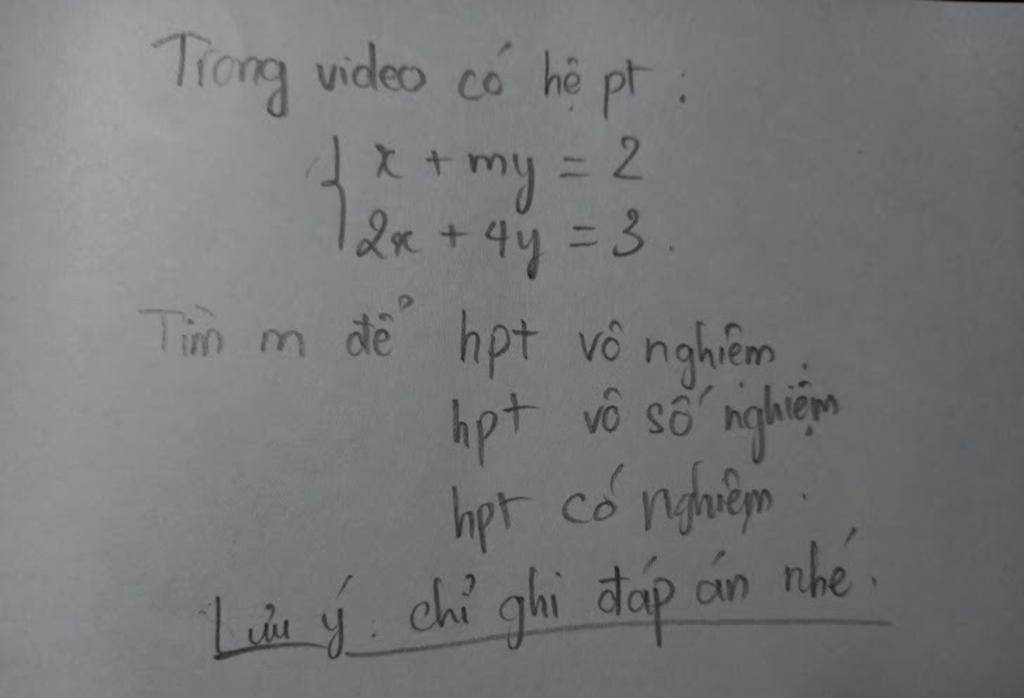 Trong video có hệ pt :
x + my = 2
2x + 4y = 3 .
Tìm m để hpt vô nghiệm .
hpt vô số nghiệm
hpt có nghiệm .
Lưu ý . chỉ ghi đáp án nhé .